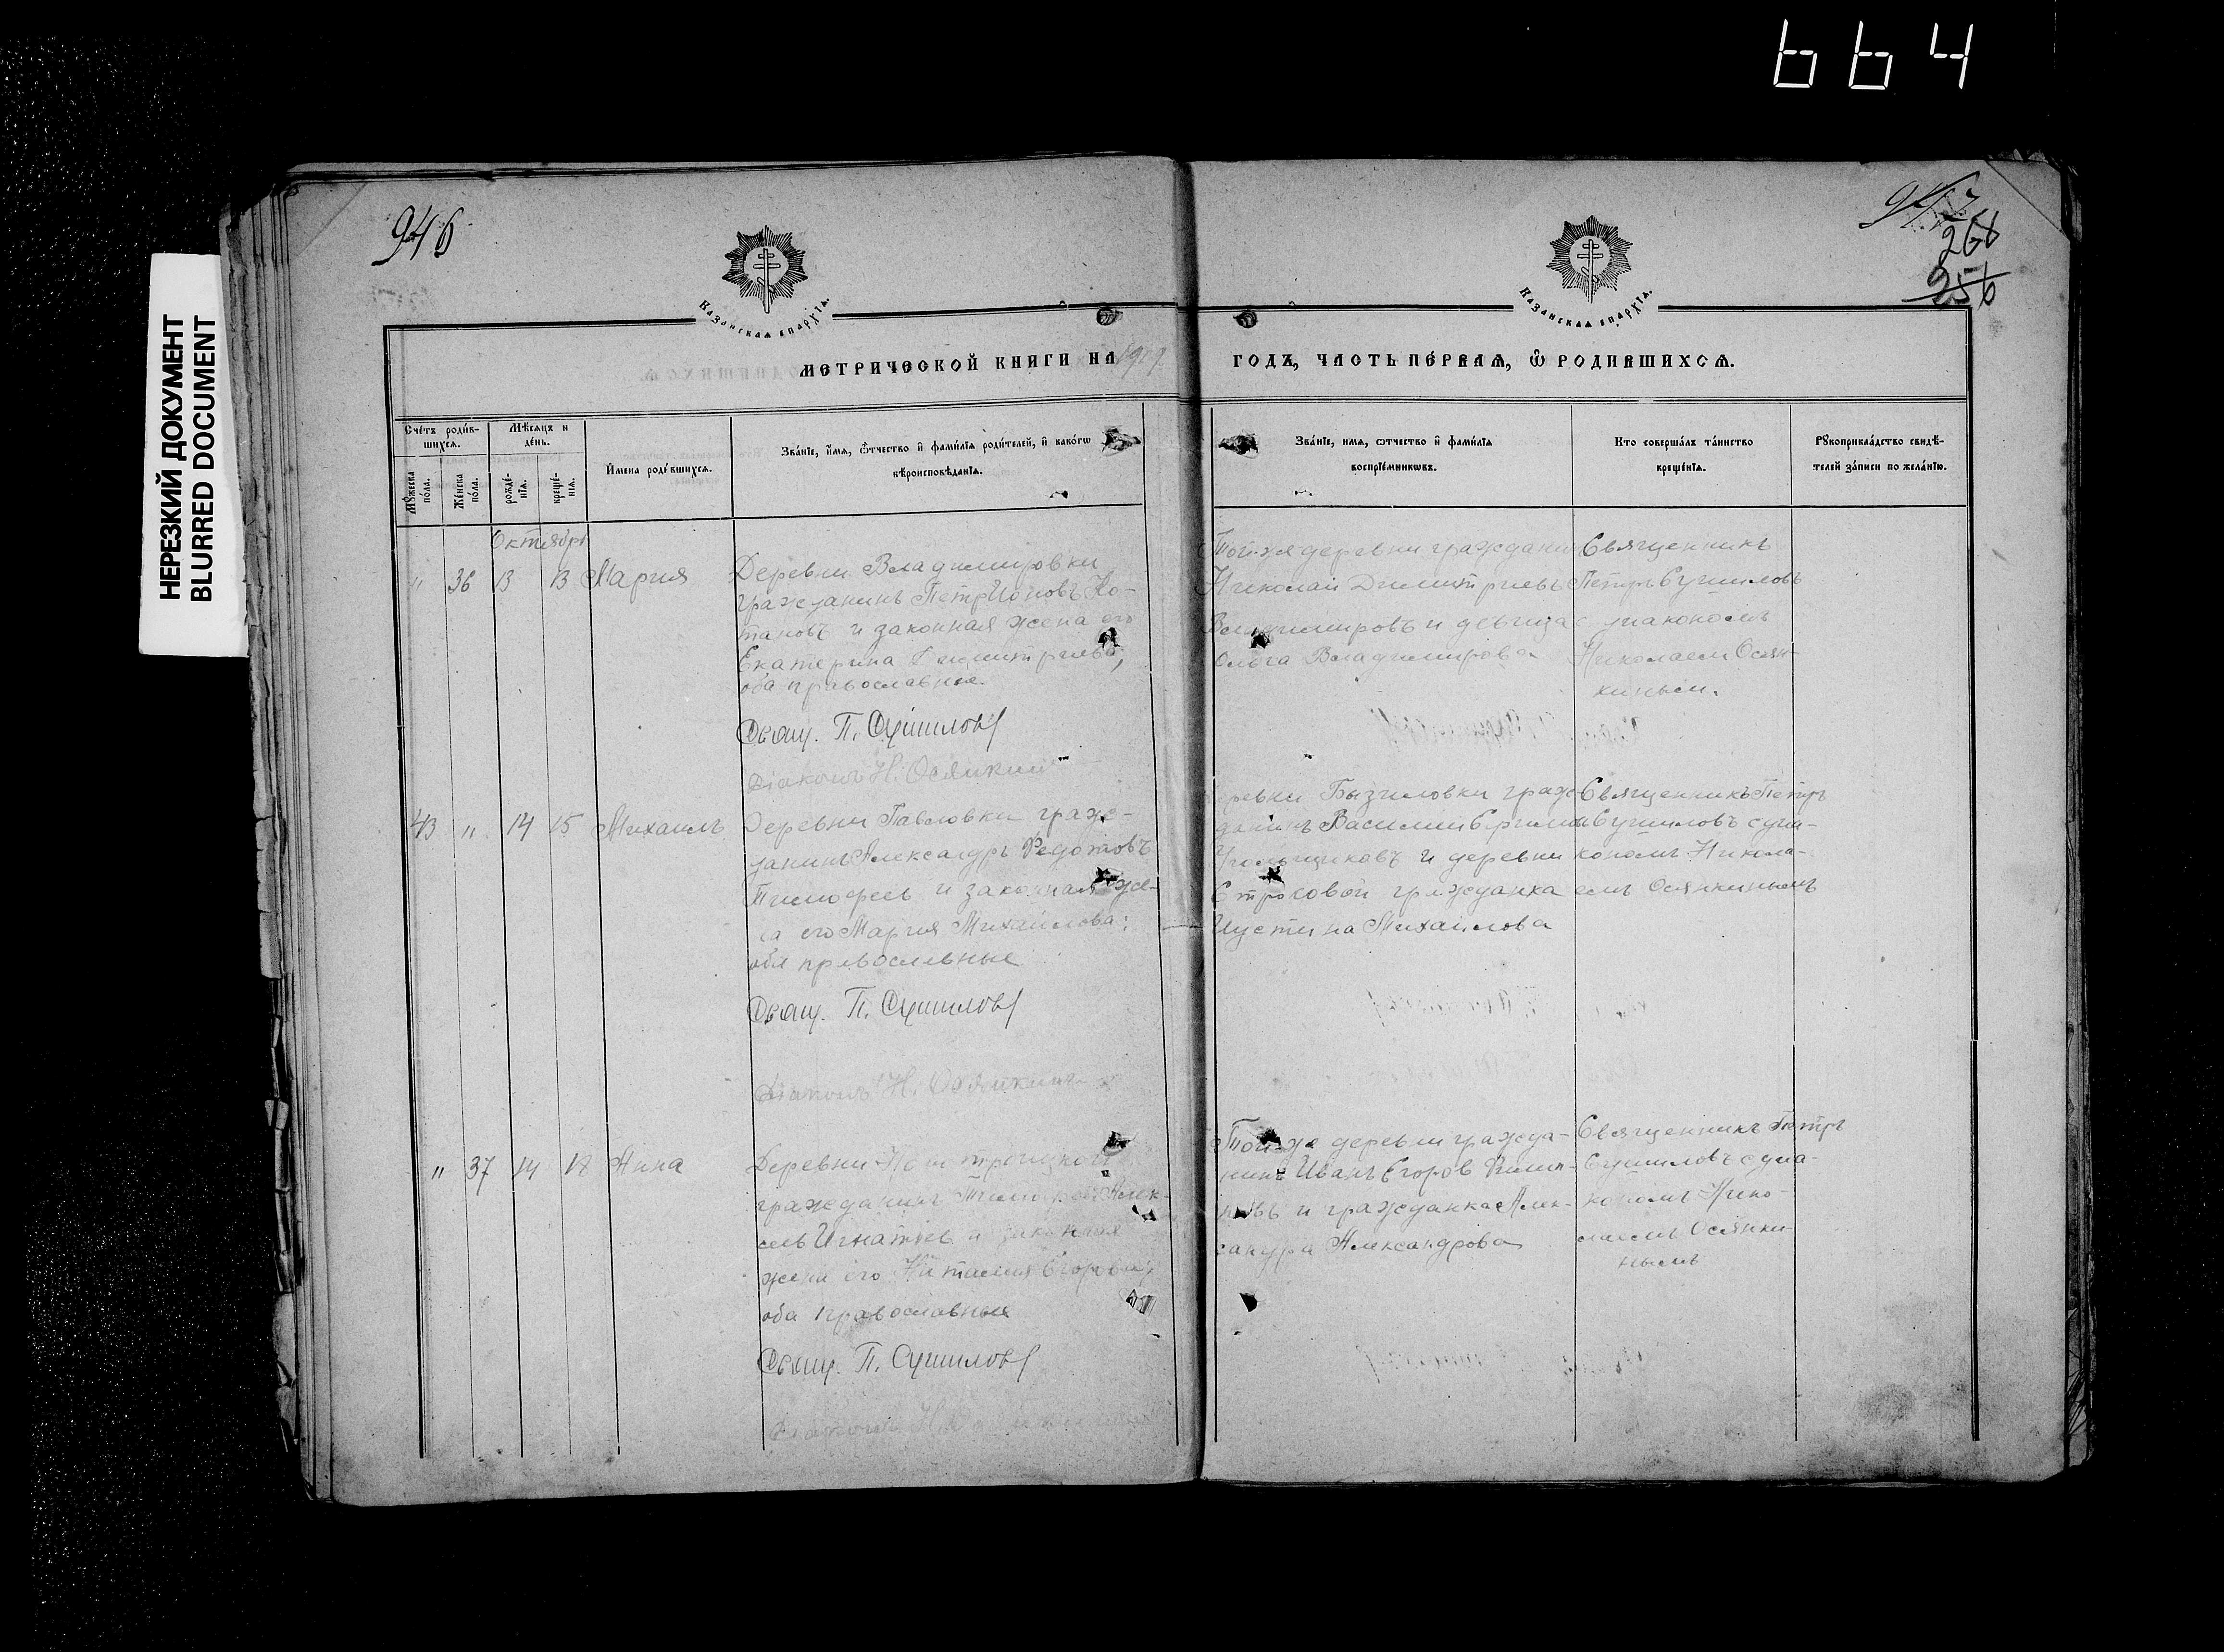 664
НЕРЕЗКИЙ ДОКУМЕНТ
BLURRED DOCUMENT
946
268
256
Казанская епархїа.
Казанская епархїа.
МЕТРИЧЕСКОЙ КНИГИ НА
ГОДЪ, ЧАСТЬ ПЕ́РВАѦ, Ѡ РОДИВШИХСѦ.
Сче́тъ роди́в-
шихсѧ.
Мѣсѧцъ и
де́нь.
Мꙋ́жеска
по́ла.
Же́нска
по́ла.
рожде́-
нїѧ.
креще́-
нїѧ.
И́мена роди́вшихсѧ.
Зва́нїе, и́мѧ, ѻ҆́тчество и҆ фами́лїѧ роди́телей, и҆ како́гѡ
вѣроисповѣ́данїѧ.
Зва́нїе, имѧ, ѻтчество и҆ фами́лїѧ
воспрїе́мникѡвъ.
Кто соверша́лъ та́инство
креще́нїѧ.
Рꙋкоприкла́дство свидѣ́-
телей за́писи по жела́нїю.
Октября
" 36 13 13 Мария
Деревни Владимировки
гражданинъ Петръ Ионовъ По-
таповъ и законная жена его
Екатерина Димитриева,
оба православные.
Свящ. П. Сушиловъ
Діаконъ Н. Осянкинъ
Той-же деревни гражданин
Николай Димитриевъ
Владимировъ и девица
Ольга Владимирова
Священникъ
Петръ Сушиловъ
с диакономъ
Николаем Осян-
кинымъ.
43 " 14 15 Михаилъ
Деревни Павловки граж-
данинъ Александръ Федотовъ
Тимофеев и законная же-
на его Мария Михайлова:
оба православные
Свящ. П. Сушиловъ
Діаконъ Н. Осянкинъ
деревни граж-
данинъ Василий
и деревни
гражданка
Иустина Михайлова
Священникъ Петръ
Сушиловъ с диа-
кономъ Никола-
емъ Осянкинымъ
" 37 14 18 Анна
Деревни
гражданинъ Тимофей Алек-
сеевъ Игнатьев и законная
жена его Наталия Егорова;
оба православные
Свящ. П. Сушиловъ
Діаконъ Н. Осянкинъ
Той-же деревни гражда-
нинъ Иванъ Егоров Филип-
повъ и гражданка Алек-
сандра Александрова
Священникъ Петръ
Сушиловъ с диа-
кономъ Нико-
лаемъ Осянки-
нымъ